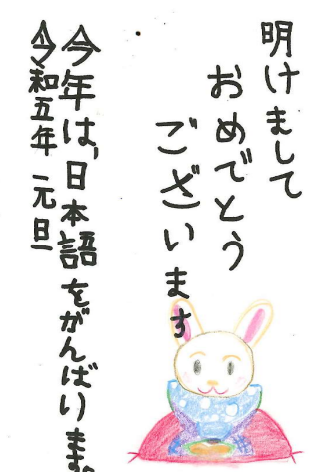 明けまして
おめでとう
ございます
今年は、日本語をがんばります。
令和五年 元旦